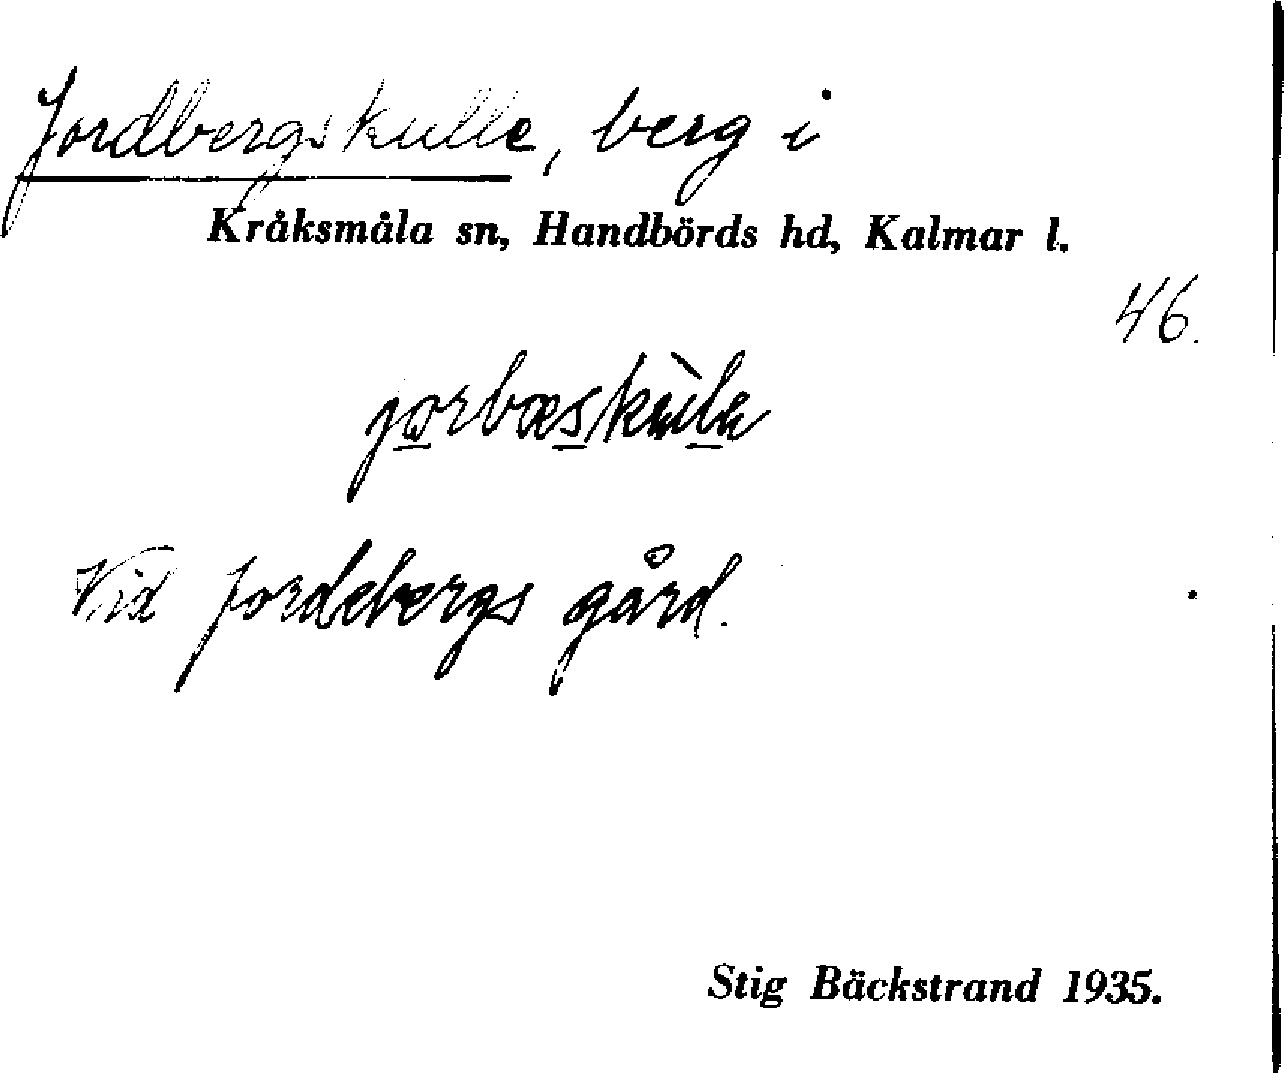 Jordbergskulle, berg i
Kråksmåla sn, Handbörds hd, Kalmar l.
46.
Vid Jordebergs gård.
Stig Bäckstrand 1935.